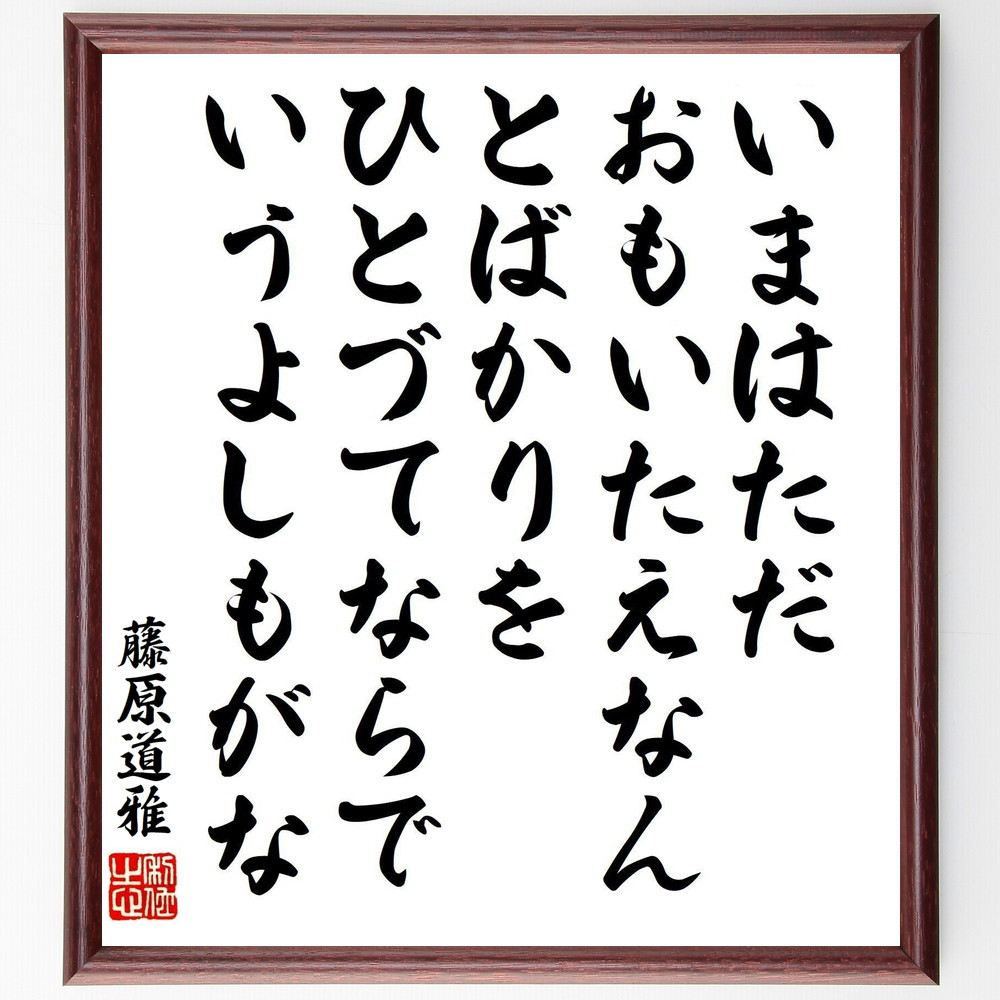 いまはただ
おもいたえなん
とばかりを
ひとづてならで
いうよしもがな
藤原道雅